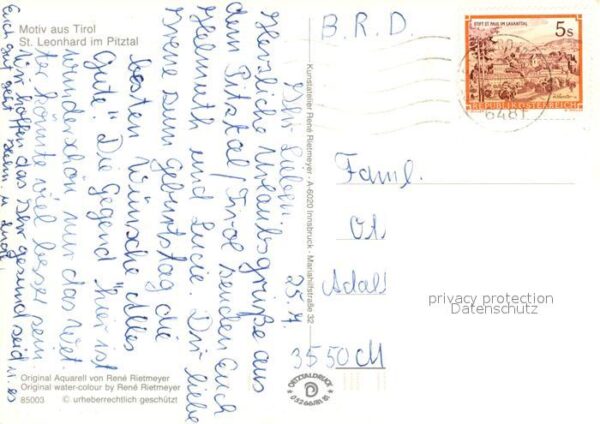 Motiv aus Tirol
St. Leonhard im Pitztal
B. R. D.
STIFT ST. PAUL IM LAVANTTAL
5s
REPUBLIK ÖSTERREICH
6481
25.7
Ihr Lieben.
Herzliche Urlaubsgrüße aus
dem Pitztal/Tirol senden Euch
Helmuth und Lucie. Dir liebe
Irene zum Geburtstag die
besten Wünsche "Alles
Gute". Die Gegend hier ist
wunderschön nur das Wet.
ter könnte viel besser sein.
Wir hoffen das Ihr gesund seid u. es
Euch gut geht.
Kunstatelier René Rietmeyer · A-6020 Innsbruck · Mariahilfstraße 32
Famil.
Ot
Adalf
privacy protection
Datenschutz
3550 M
Original Aquarell von René Rietmeyer
Original water-colour by René Rietmeyer
85003 © urheberrechtlich geschützt